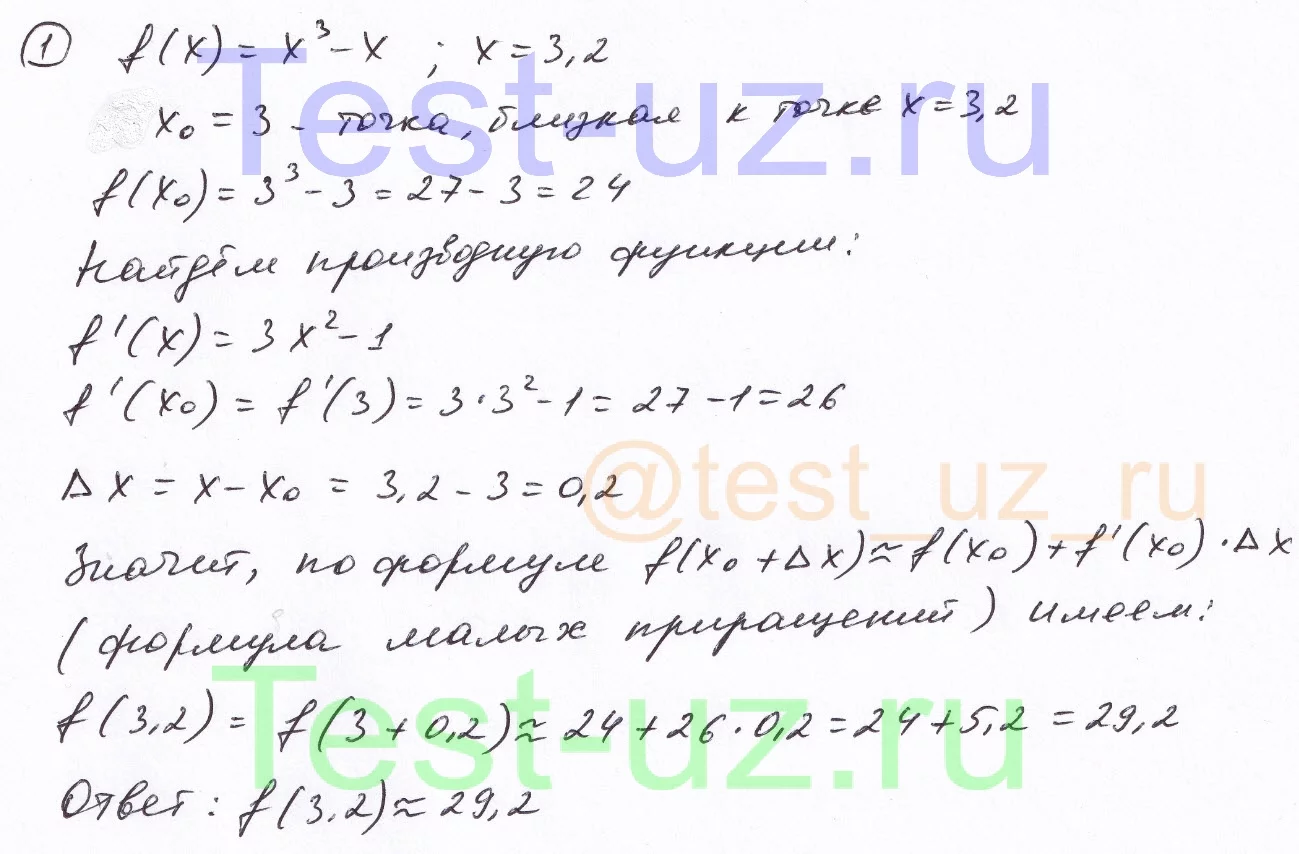 ① f(x) = x³ - x ; x = 3,2
x₀ = 3 - точка, близкая к точке x = 3,2
f(x₀) = 3³ - 3 = 27 - 3 = 24
Найдём производную функции:
f'(x) = 3x² - 1
f'(x₀) = f'(3) = 3·3² - 1 = 27 - 1 = 26
Δx = x - x₀ = 3,2 - 3 = 0,2
Значит, по формуле f(x₀ + Δx) ≈ f(x₀) + f'(x₀)·Δx
(формула малых приращений) имеем:
f(3,2) = f(3 + 0,2) ≈ 24 + 26·0,2 = 24 + 5,2 = 29,2
Ответ: f(3,2) ≈ 29,2
Test-uz.ru
@test_uz_ru
Test-uz.ru